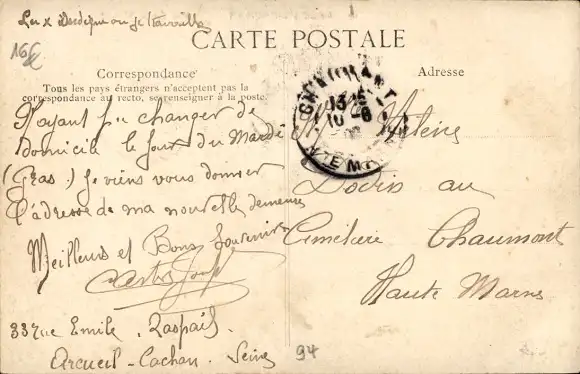 CARTE POSTALE
Correspondance
Adresse
Tous les pays étrangers n'acceptent pas la
correspondance au recto, se renseigner à la poste.
N'ayant pu changer de
domicile le jour du Mardi
(Gras.) Je viens vous donner
l'adresse de ma nouvelle demeure
Meilleurs et Bons Souvenirs
33 rue Emile Raspail.
Arcueil-Cachan. Seine
au
Cimetière Chaumont
Haute Marne
CHAUMONT
13 15
10 -6
Hte MARNE
94